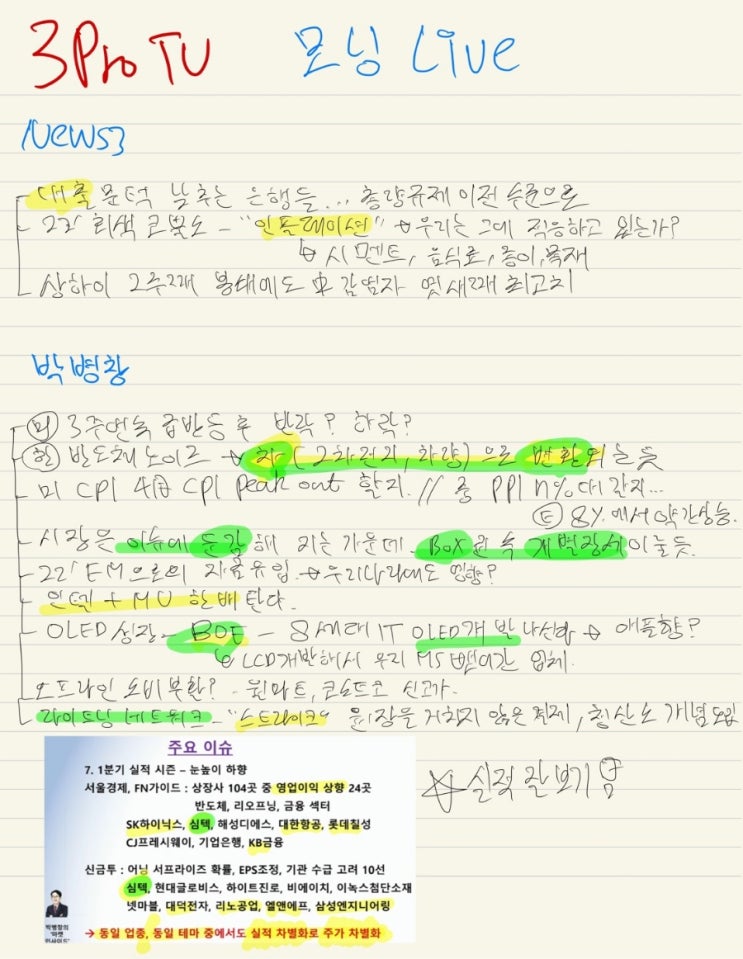 3Pro TV 모닝 Live
News3
대출 문턱 낮추는 은행들... 총량규제 이전 수준으로
22' 회색 코뿔소 - "인플레이션" → 우리는 그에 적응하고 있는가?
↳ 시멘트, 음식료, 종이, 목재
상하이 2주째 봉쇄에도 中 감염자 엿새째 최고치
박병창
미 3주연속 급반등 후 반락? 하락?
한 반도체 노이즈 → 차 (2차전지, 차량) 으로 변환되는 듯
미 CPI 4月 CPI peak out 할지. // 중 PPI n%대 갈지...
E 8%에서 약간상승.
시장은 이슈에 둔감해 지는 가운데. Box권 속 개별장세 이뉼듯.
22' EM으로의 자금유입. → 우리나라에도 영향?
인텔 + MU 한배 탄다.
OLED 성장 - BOE - 8세대 IT OLED개발 나선다 → 애플향?
↳ LCD개발해서 우리 MS 뺏어간 업체.
오프라인 소비 부활? - 월마트, 코스트코 신고가.
라이트닝 네트워크 - "스트라이크" 은행을 거치지 않은 결제, 청산소 개념 도입
주요 이슈
7. 1분기 실적 시즌 – 눈높이 하향
서울경제, FN가이드 : 상장사 104곳 중 영업이익 상향 24곳
반도체, 리오프닝, 금융 섹터
SK하이닉스, 심텍, 해성디에스, 대한항공, 롯데칠성
CJ프레시웨이, 기업은행, KB금융
☆ 실적 잘보기
신금투 : 어닝 서프라이즈 확률, EPS조정, 기관 수급 고려 10선
심텍, 현대글로비스, 하이트진로, 비에이치, 이녹스첨단소재
넷마블, 대덕전자, 리노공업, 엘앤에프, 삼성엔지니어링
→ 동일 업종, 동일 테마 중에서도 실적 차별화로 주가 차별화
박병창의
'마켓
인사이드'